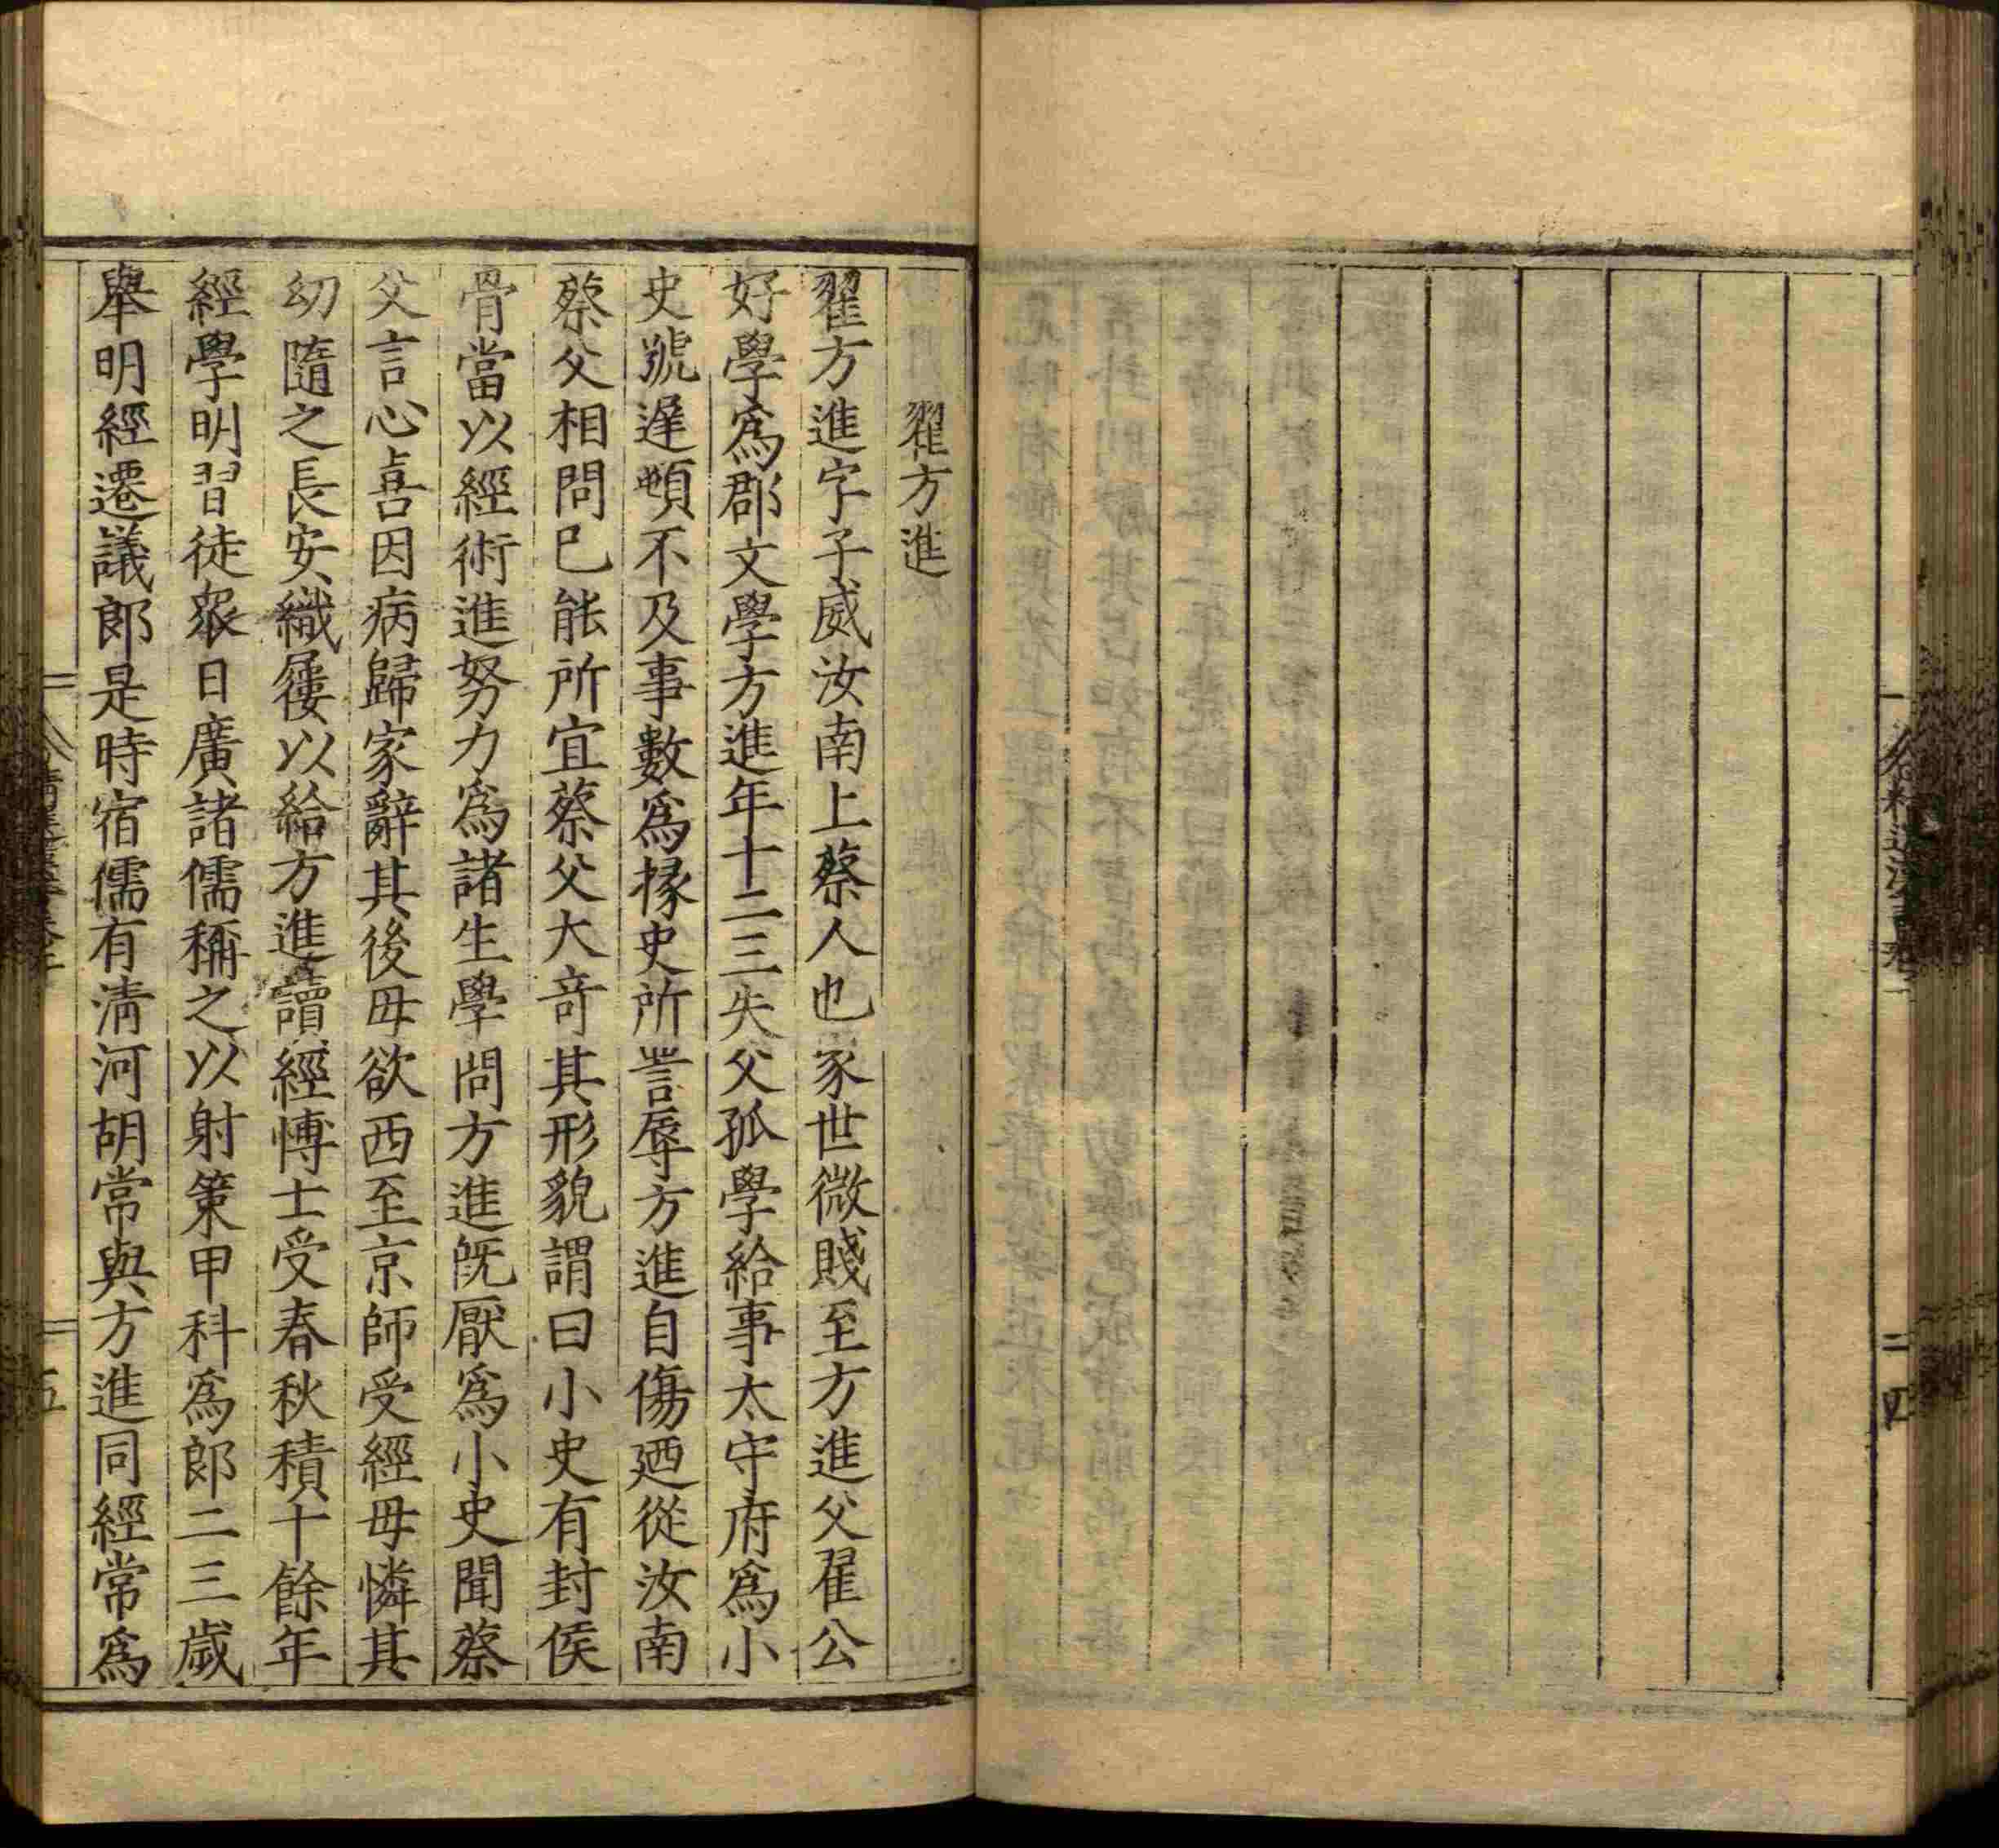 二四
翟方進
翟方進字子威汝南上蔡人也家世微賤至方進父翟公
好學爲郡文學方進年十二三失父孤學給事太守府爲小
史號遲頓不及事數爲掾史所詈辱方進自傷廼從汝南
蔡父相問已能所宜蔡父大奇其形貌謂曰小史有封侯
骨當以經術進努力爲諸生學問方進旣厭爲小史聞蔡
父言心喜因病歸家辭其後母欲西至京師受經母憐其
幼隨之長安織屨以給方進讀經博士受春秋積十餘年
經學明習徒衆日廣諸儒稱之以射策甲科爲郎二三歲
舉明經遷議郎是時宿儒有淸河胡常與方進同經常爲